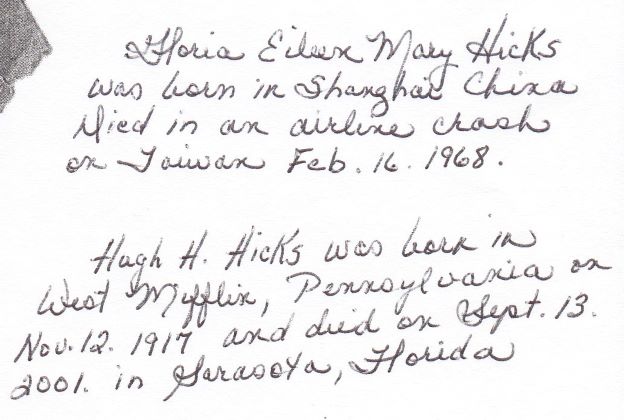 Gloria Eileen Mary Hicks
was born in Shanghai China
Died in an airline crash
on Taiwan Feb. 16. 1968.
Hugh H. Hicks was born in
West Mifflin, Pennsylvania on
Nov. 12. 1917 and died on Sept. 13.
2001. in Sarasota, Florida